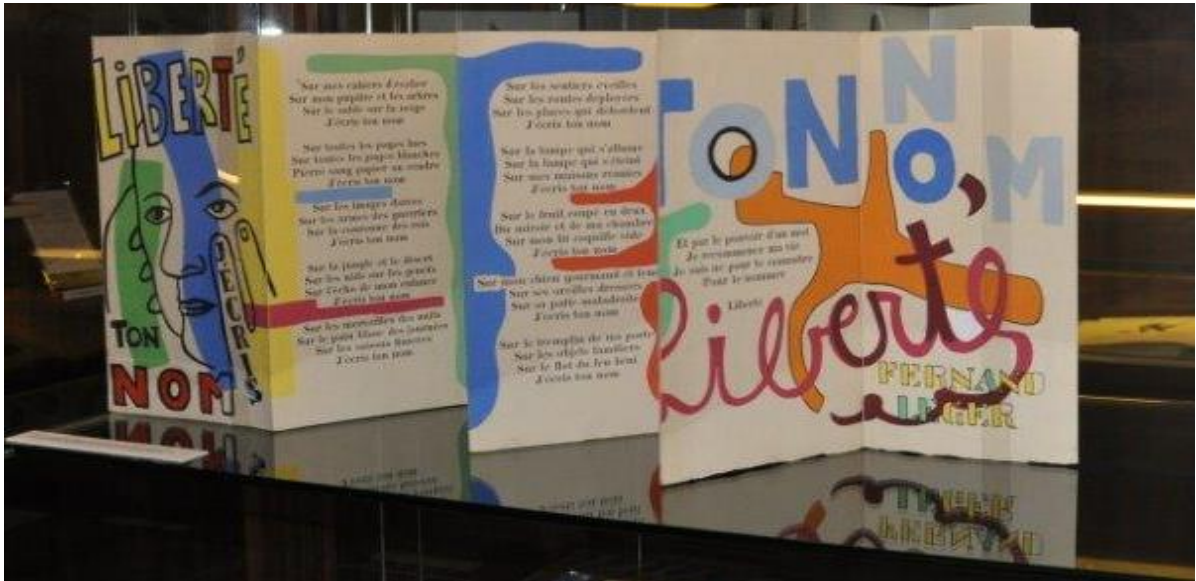 LIBERTÉ
J'ÉCRIS
TON
NOM
Sur mes cahiers d'écolier
Sur mon pupitre et les arbres
Sur le sable sur la neige
J'écris ton nom
Sur toutes les pages lues
Sur toutes les pages blanches
Pierre sang papier ou cendre
J'écris ton nom
Sur les images dorées
Sur les armes des guerriers
Sur la couronne des rois
J'écris ton nom
Sur la jungle et le désert
Sur les nids sur les genêts
Sur l'écho de mon enfance
J'écris ton nom
Sur les merveilles des nuits
Sur le pain blanc des journées
Sur les saisons fiancées
J'écris ton nom
Sur les sentiers éveillés
Sur les routes déployées
Sur les places qui débordent
J'écris ton nom
Sur la lampe qui s'allume
Sur la lampe qui s'éteint
Sur mes maisons réunies
J'écris ton nom
Sur le fruit coupé en deux
Du miroir et de ma chambre
Sur mon lit coquille vide
J'écris ton nom
Sur mon chien gourmand et
Sur ses oreilles dressées
Sur sa patte maladroite
J'écris ton nom
Sur le tremplin de ma porte
Sur les objets familiers
Sur le flot du feu béni
J'écris ton nom
TON NOM,
Et par le pouvoir d'un mot
Je recommence ma vie
Je suis né pour te connaître
Pour te nommer
Liberté
Liberté
FERNAND
LÉGER